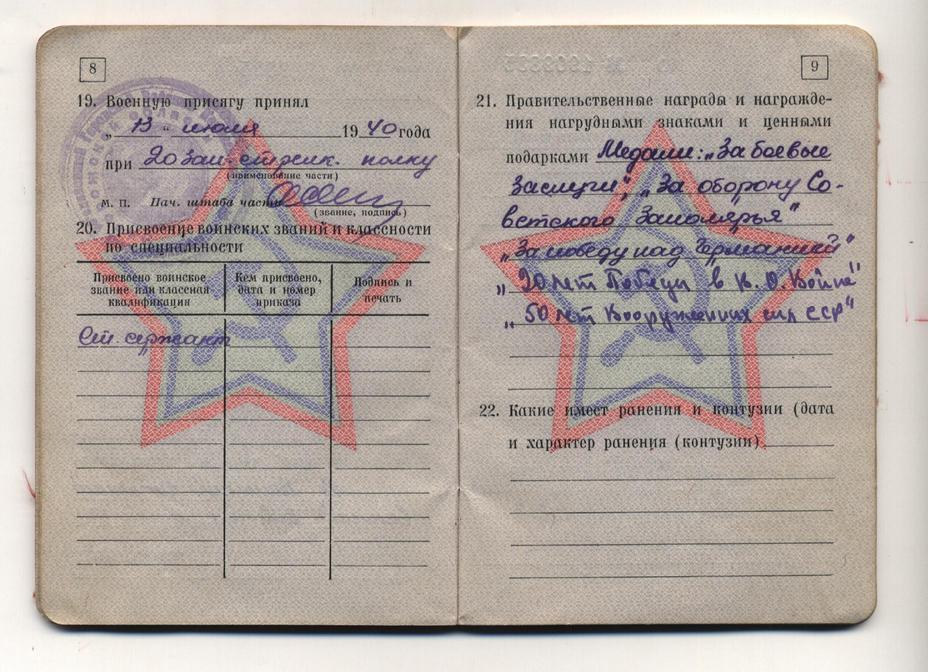 8
19. Военную присягу принял
„ 13 “ июля 1940 года
при 20 зап. стрелк. полку
(наименование части)
М. П. Нач. штаба части
(звание, подпись)
20. Присвоение воинских званий и классности
по специальности
Присвоено воинское звание или классная квалификация
Кем присвоено, дата и номер приказа
Подпись и печать
Ст. сержант
9
21. Правительственные награды и награжде-
ния нагрудными знаками и ценными
подарками Медали: „За боевые
Заслуги“, „За оборону Со-
ветского Заполярья“
„За победу над Германией“
„20 лет Победы в В. О. Войне“
„50 лет Вооруженных сил СССР“
22. Какие имеет ранения и контузии (дата
и характер ранения (контузии)